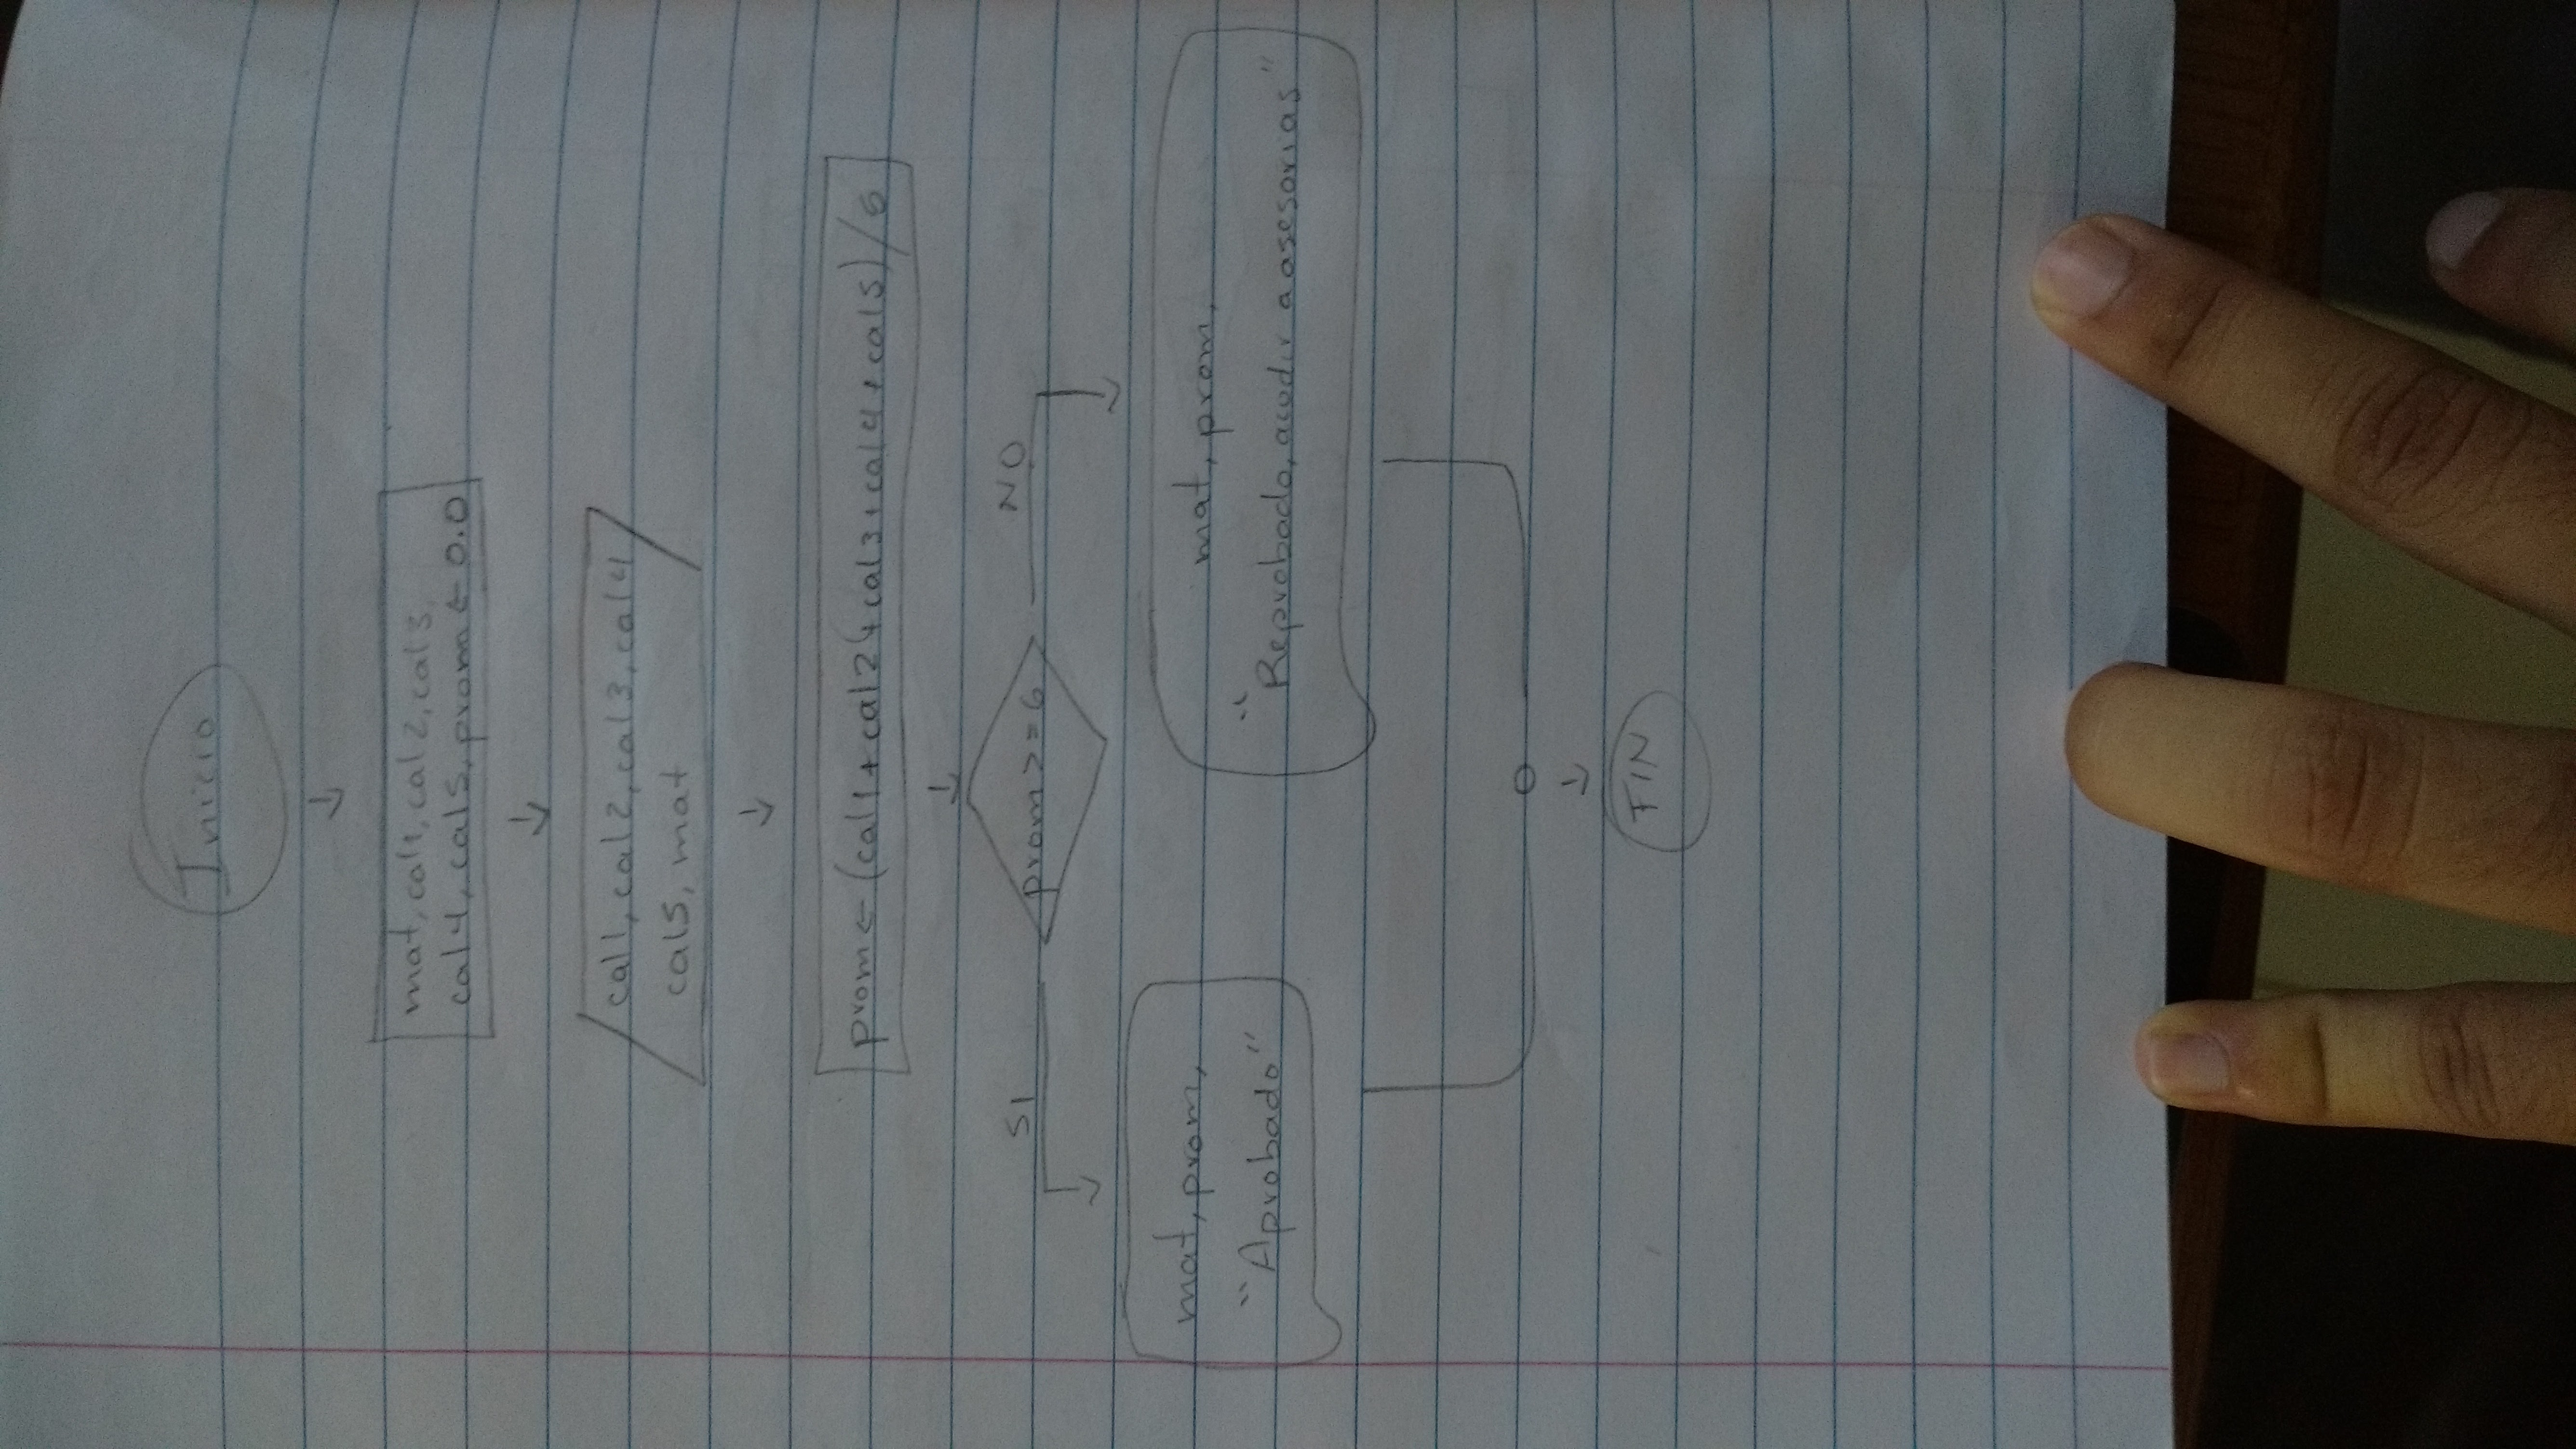 Inicio
mat, cal1, cal2, cal3,
cal4, cal5, prom ← 0.0
cal1, cal2, cal3, cal4
cal5, mat
prom ← (cal1 + cal2 + cal3 + cal4 + cal5) / 5
prom >= 6
SI
NO
mat, prom,
"Aprobado"
mat, prom,
"Reprobado, acudir a asesorias"
FIN